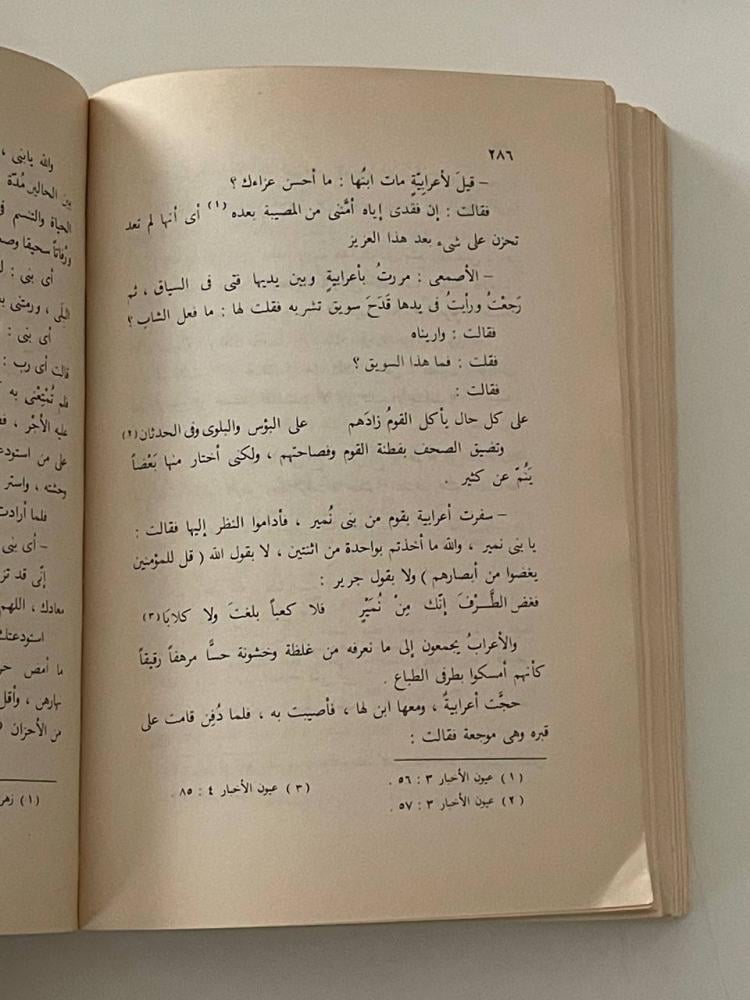 ٢٨٦
– قيلَ لأعرابيّةٍ مات ابنُها : ما أحسن عزاءك ؟
فقالت : إن فقدى إياه أمَّننى من المصيبة بعده (١) أى أنها لم تعد
تحزن على شىء بعد هذا العزيز
– الأصمعى : مررتُ بأعرابيةٍ وبين يديها فتى فى السياق ، ثم
رَجعْتُ ورأيتُ فى يدها قَدَحَ سويق تشربه فقلت لها : ما فعل الشاب ؟
فقالت : واريناه
فقلت : فما هذا السويق ؟
فقالت :
على كل حال يأكل القومُ زادَهم على البؤس والبلوى وفى الحدثان (٢)
وتضيق الصحف بفطنة القوم وفصاحتهم ، ولكنى أختار منها بَعْضاً
يَنُمّ عن كثير .
– سفرت أعرابية بقوم من بنى نُمير ، فأداموا النظر إليها فقالت :
يا بنى نمير ، والله ما أخذتم بواحدة من اثنتين ، لا بقول الله ( قل للمؤمنين
يغضوا من أبصارهم ) ولا بقول جرير :
فغض الطَّـرْفَ إنّك مِنْ نُمَيْرٍ فلا كعباً بلغتَ ولا كلابَا (٣)
والأعرابُ يجمعون إلى ما نعرفه من غلظة وخشونة حسًّا مرهفاً رقيقاً
كأنهم أمسكوا بطرفى الطباع .
حجَّت أعرابيةٌ ، ومعها ابن لها ، فأصيبت به ، فلما دُفِن قامت على
قبره وهى موجعة فقالت :
(١) عيون الأخبار ٣ : ٥٦ .
(٢) عيون الأخبار ٣ : ٥٧ .
(٣) عيون الأخبار ٤ : ٨٥ .
والله يابنى ،
بين الحالين مُدّة
الحياة والتنسم
ورُفاتاً سحيقا
أى بنى :
البلَى ، ورمتنى
أى بنى :
قالت أى رب :
فلم تُمتِّعْنى به
عليه الأجْر ،
على من
، واستر
فلما أرادت
– أى بنى
إنّى قد
معادك ، اللهم
استودعتك
ما أمض
نهارهن ، وأقل
من الأحزان
(١)